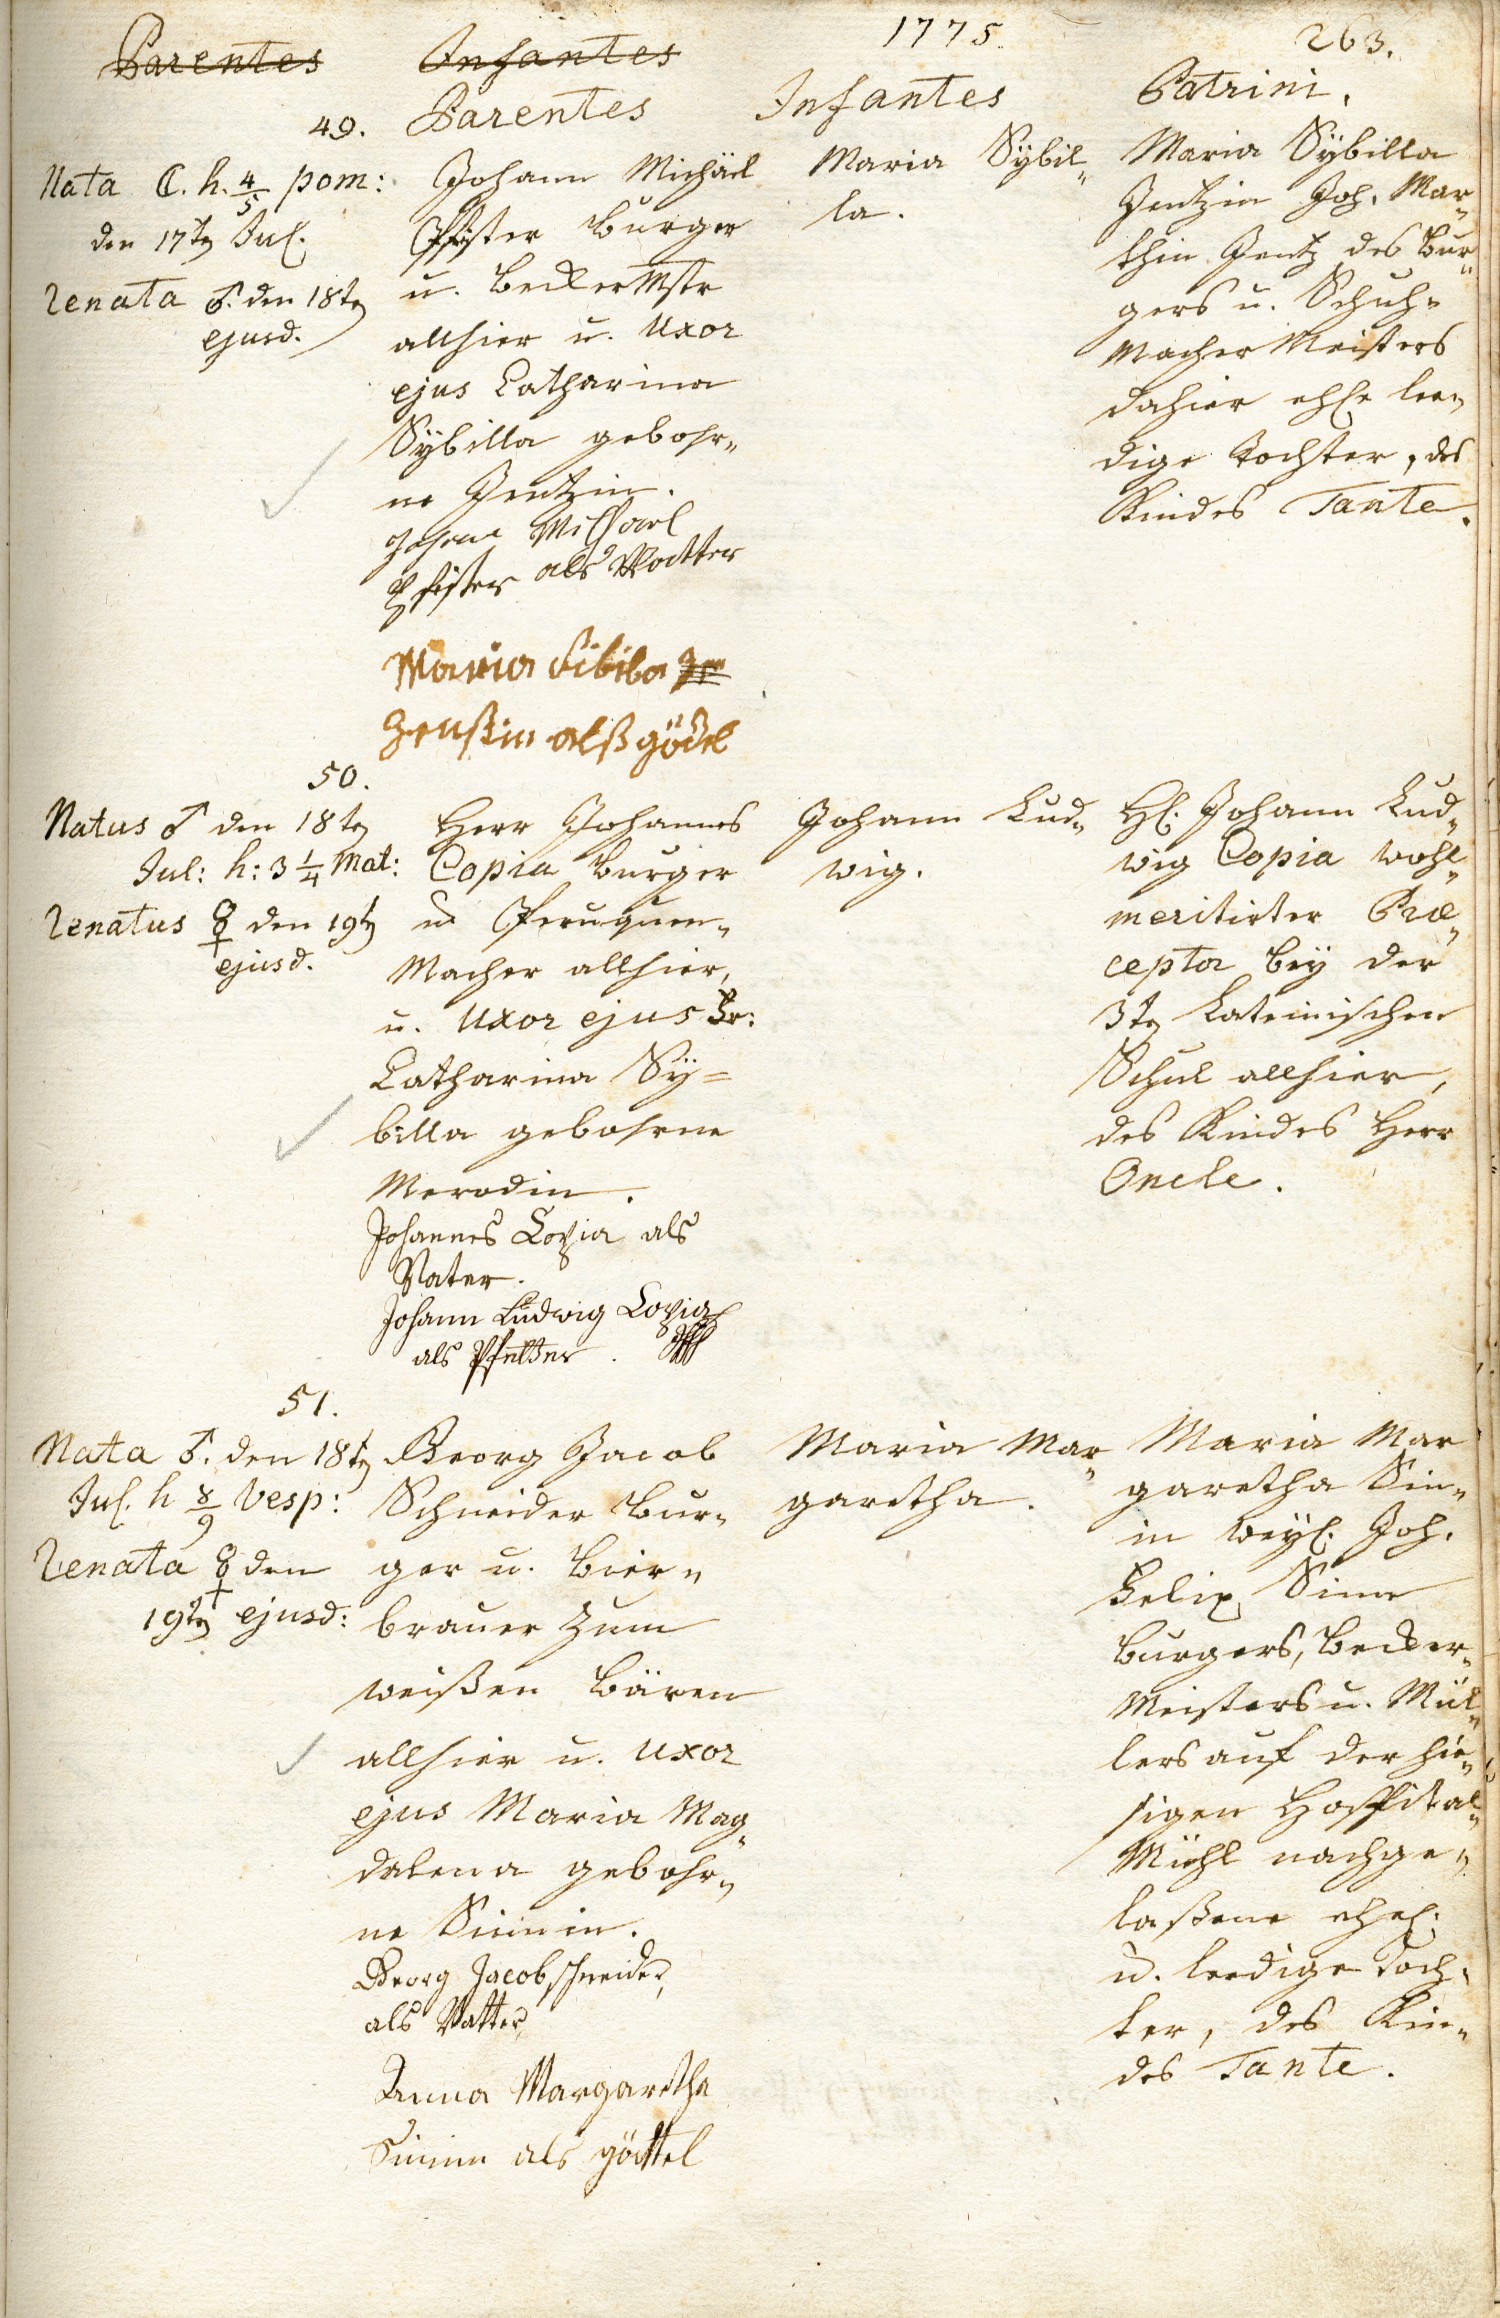 1775.
263.
Parentes Infantes
Parentes Infantes Patrini.
49.
Nata ☾. h. 4/5 pom:
den 17ten Jul.
renata ♂. den 18ten
ejusd.
Johann Michäel
Pfister Burger
u. Becker Mstr
allhier u. Uxor
ejus Catharina
Sÿbilla gebohr„
ne Jentzin.
Johann Michael
Pfister als Vatter
Maria Sibila
als gödel
Maria Sÿbil„
la.
Maria Sÿbilla
Jentzin Joh. Mar„
thin Jentz des Bur„
gers u. Schuh„
Macher Meisters
dahier ehle lee„
dige Tochter, des
Kindes Tante.
50.
Natus ♂ den 18ten
Jul: h: 3 1/4 Mat:
renatus ☿ den 19ten
ejusd.
Herr Johannes
Copia Burger
u. Peruquen„
Macher allhier,
u. Uxor ejus Fr:
Catharina Sÿ=
billa gebohrne
Merodin.
Johannes Copia als
Vater.
Johann Ludwig Copia
als Pfetter.
Johann Lud„
wig.
Hl. Johann Lud„
wig Copia wohl„
meritirter Præ„
ceptor beÿ der
3ten Lateinischen
Schul allhier,
des Kindes Herr
Oncle.
51.
Nata ♂. den 18ten
Jul. h 8/9 Vesp:
renata ☿ den
19ten ejusd:
Georg Jacob
Schneider Bur„
ger u. Bier„
brauer zum
weißen Bären
allhier u. Uxor
ejus Maria Mag„
dalena gebohr„
ne Sinnin.
Georg Jacob schneider,
als Vatter
Anna Margaretha
Sinnin als göttel
Maria Mar„
garetha.
Maria Mar
garetha Sin„
in weÿl. Joh.
Felix Sinn
Burgers, Becker„
Meisters u. Mül„
lers auf der hie„
sigen Hospital„
Mühl nachge„
laßene ehel:
u. leedige Toch„
ter, des Kin„
des Tante.